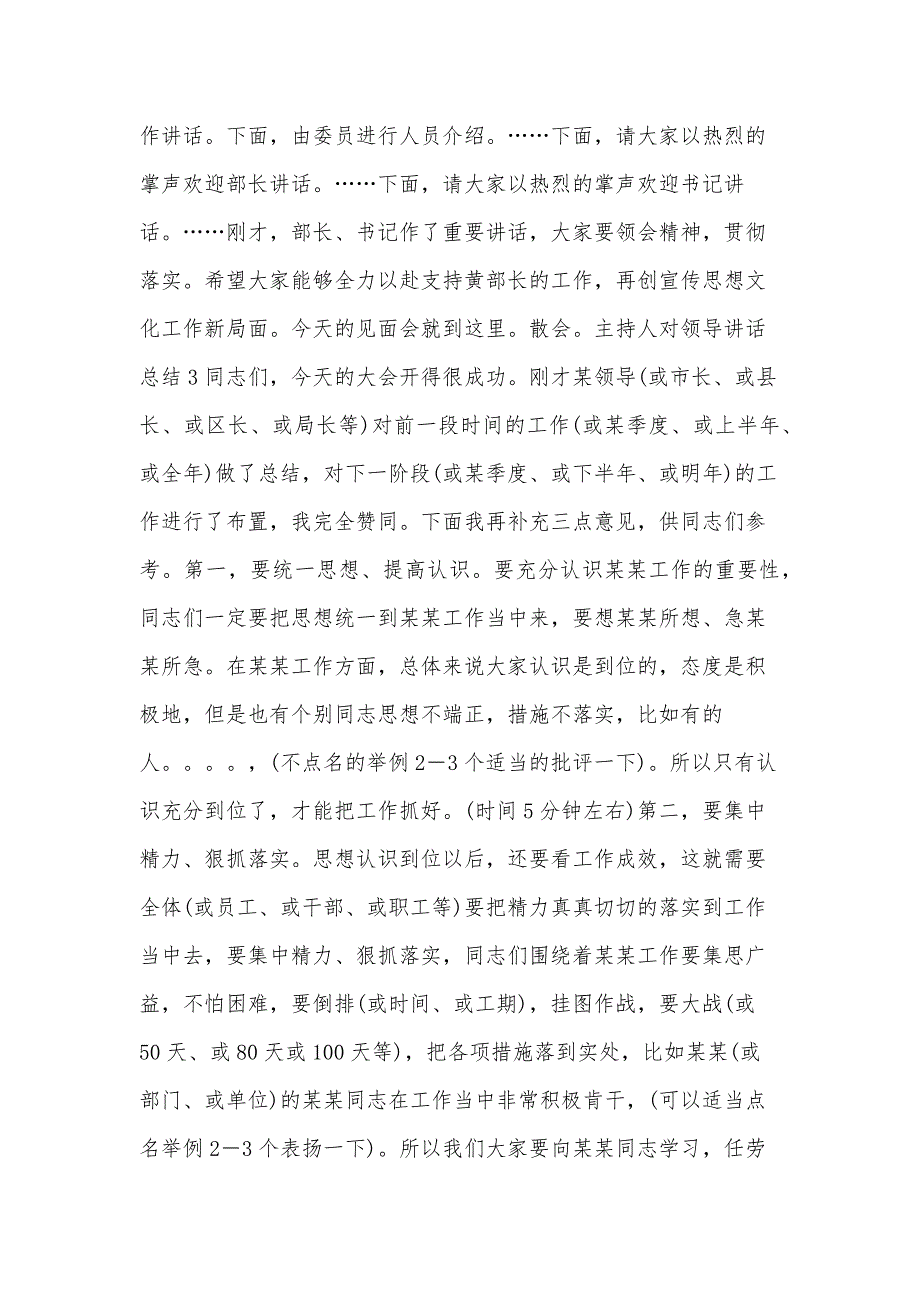 作讲话。下面，由委员进行人员介绍。……下面，请大家以热烈的
掌声欢迎部长讲话。……下面，请大家以热烈的掌声欢迎书记讲
话。……刚才，部长、书记作了重要讲话，大家要领会精神，贯彻
落实。希望大家能够全力以赴支持黄部长的工作，再创宣传思想文
化工作新局面。今天的见面会就到这里。散会。主持人对领导讲话
总结 3 同志们，今天的大会开得很成功。刚才某领导(或市长、或县
长、或区长、或局长等)对前一段时间的工作(或某季度、或上半年、
或全年)做了总结，对下一阶段(或某季度、或下半年、或明年)的工
作进行了布置，我完全赞同。下面我再补充三点意见，供同志们参
考。第一，要统一思想、提高认识。要充分认识某某工作的重要性，
同志们一定要把思想统一到某某工作当中来，要想某某所想、急某
某所急。在某某工作方面，总体来说大家认识是到位的，态度是积
极地，但是也有个别同志思想不端正，措施不落实，比如有的
人。。。。，(不点名的举例 2－3 个适当的批评一下)。所以只有认
识充分到位了，才能把工作抓好。(时间 5 分钟左右)第二，要集中
精力、狠抓落实。思想认识到位以后，还要看工作成效，这就需要
全体(或员工、或干部、或职工等)要把精力真真切切的落实到工作
当中去，要集中精力、狠抓落实，同志们围绕着某某工作要集思广
益，不怕困难，要倒排(或时间、或工期)，挂图作战，要大战(或
50 天、或 80 天或 100 天等)，把各项措施落到实处，比如某某(或
部门、或单位)的某某同志在工作当中非常积极肯干，(可以适当点
名举例 2－3 个表扬一下)。所以我们大家要向某某同志学习，任劳